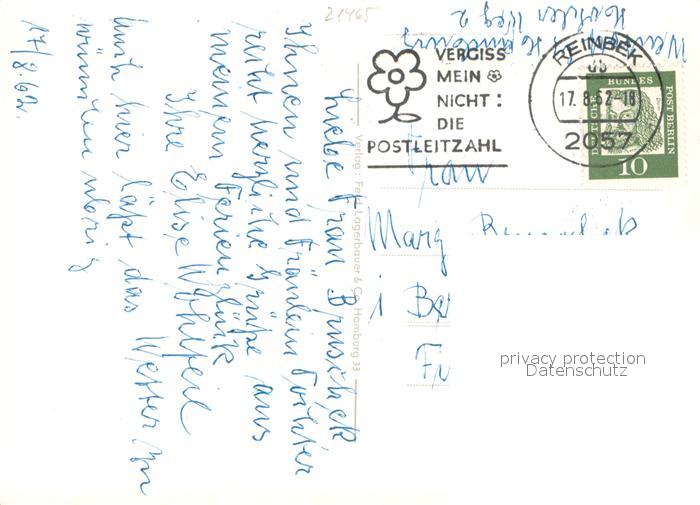 21465
VERGISS
MEIN
NICHT:
DIE
POSTLEITZAHL
REINBEK
17.8.62-18
2057
DEUTSCHE BUNDESPOST BERLIN
10
Liebe Frau Bruschek
Ihnen und Fräulein Tochter
recht herzliche Grüße aus
meinem Ferienglück
Ihre Elise
Auch hier läßt das Wetter zu
wünschen übrig
17/8.62.
Verlag: Ferd. Lagerbauer & Co. Hamburg 33
Frau
Marg
i Be
privacy protection
Datenschutz